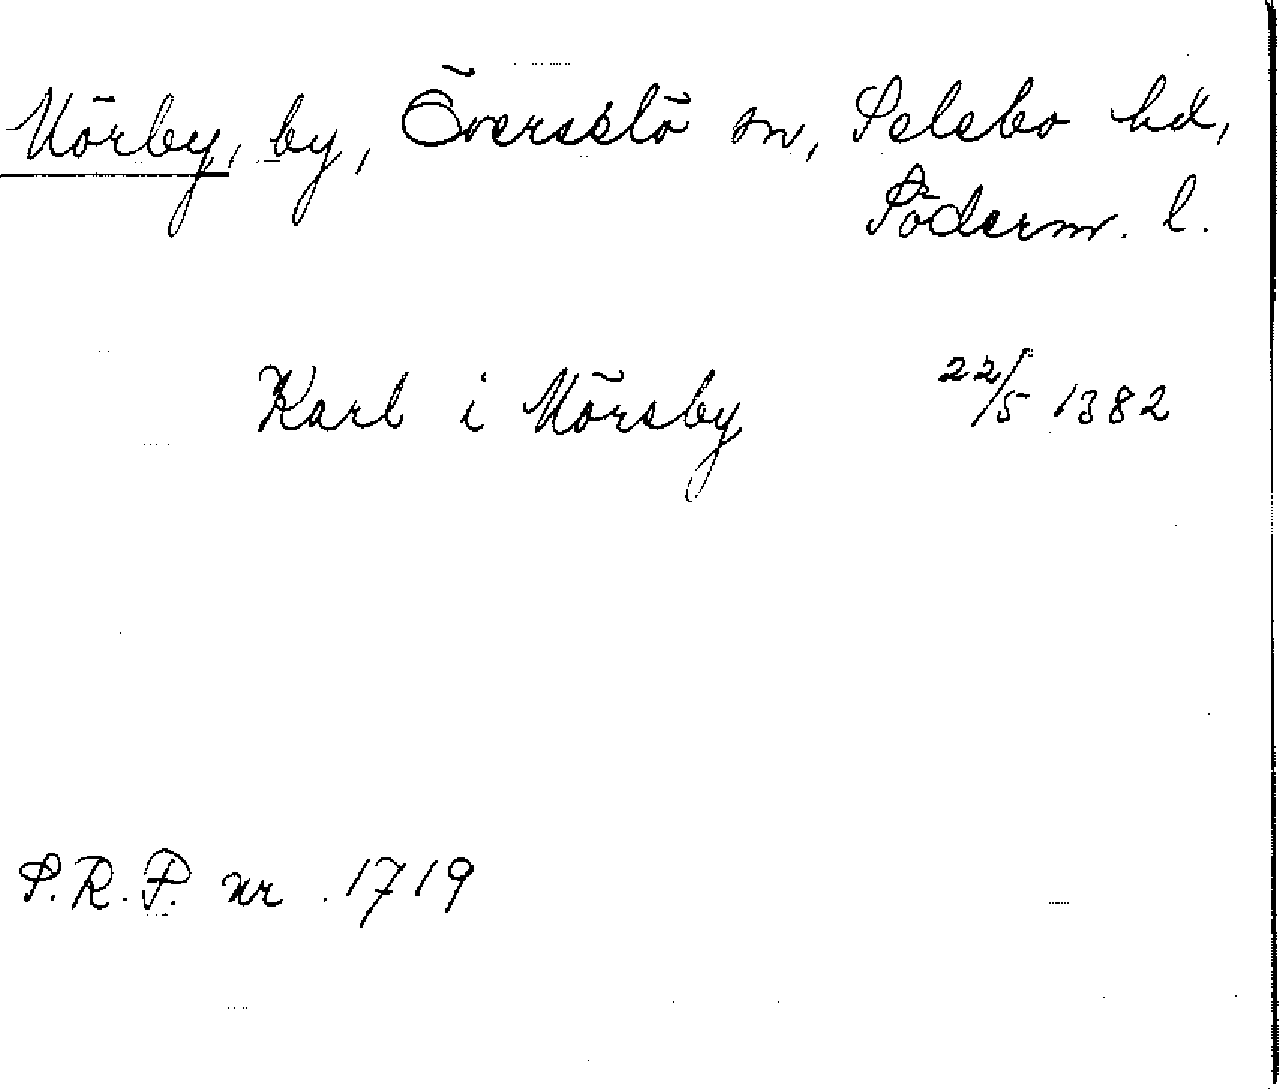 Mörby, by, Överselö sn, Selebo hd,
Söderm. l.
Karl i Mörsby 22/5 1382
S.R.P. nr 1719